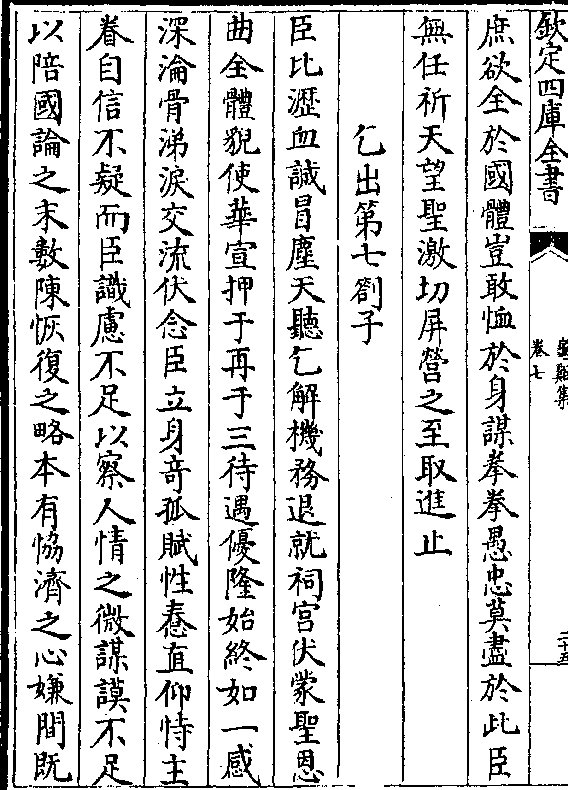 欽定四庫全書
卷七
庶欲全於國體豈敢恤於身謀拳拳愚忠莫盡於此臣
無任祈天望聖激切屏營之至取進止
乞出第七劄子
臣比瀝血誠冒塵天聽乞解機務退就祠宮伏蒙聖恩
曲全體貌使華宣押于再于三待遇優隆始終如一感
深淪骨涕淚交流伏念臣立身竒孤賦性惷直仰恃主
眷自信不疑而臣識慮不足以察人情之微謀謨不足
以陪國論之末數陳恢復之略本有恊濟之心嫌間既